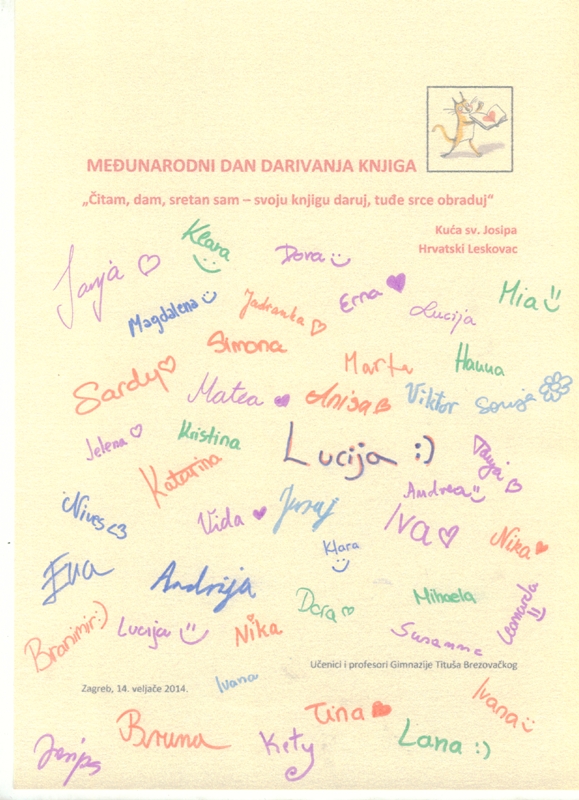 MEĐUNARODNI DAN DARIVANJA KNJIGA
„Čitam, dam, sretan sam – svoju knjigu daruj, tuđe srce obraduj“
Kuća sv. Josipa
Hrvatski Leskovac
Klara
Dora
Sanja
Erna
Mia
Magdalena
Jadranka
Lucija
Simona
Marta
Hanna
Sardy
Matea
Anisa
Viktor
Sonja
Jelena
Kristina
Lucija :)
Tanja
Katarina
Andrea
Nives <3
Vida
Juraj
Iva
Nika
Klara
Eva
Andrija
Dora
Mihaela
Leonarda
Branimir :)
Lucija
Nika
Susanna
Učenici i profesori Gimnazije Tituša Brezovačkog
Zagreb, 14. veljače 2014.
Ivana
Ivana
Tina
Bruna
Kety
Lana :)
Josipa